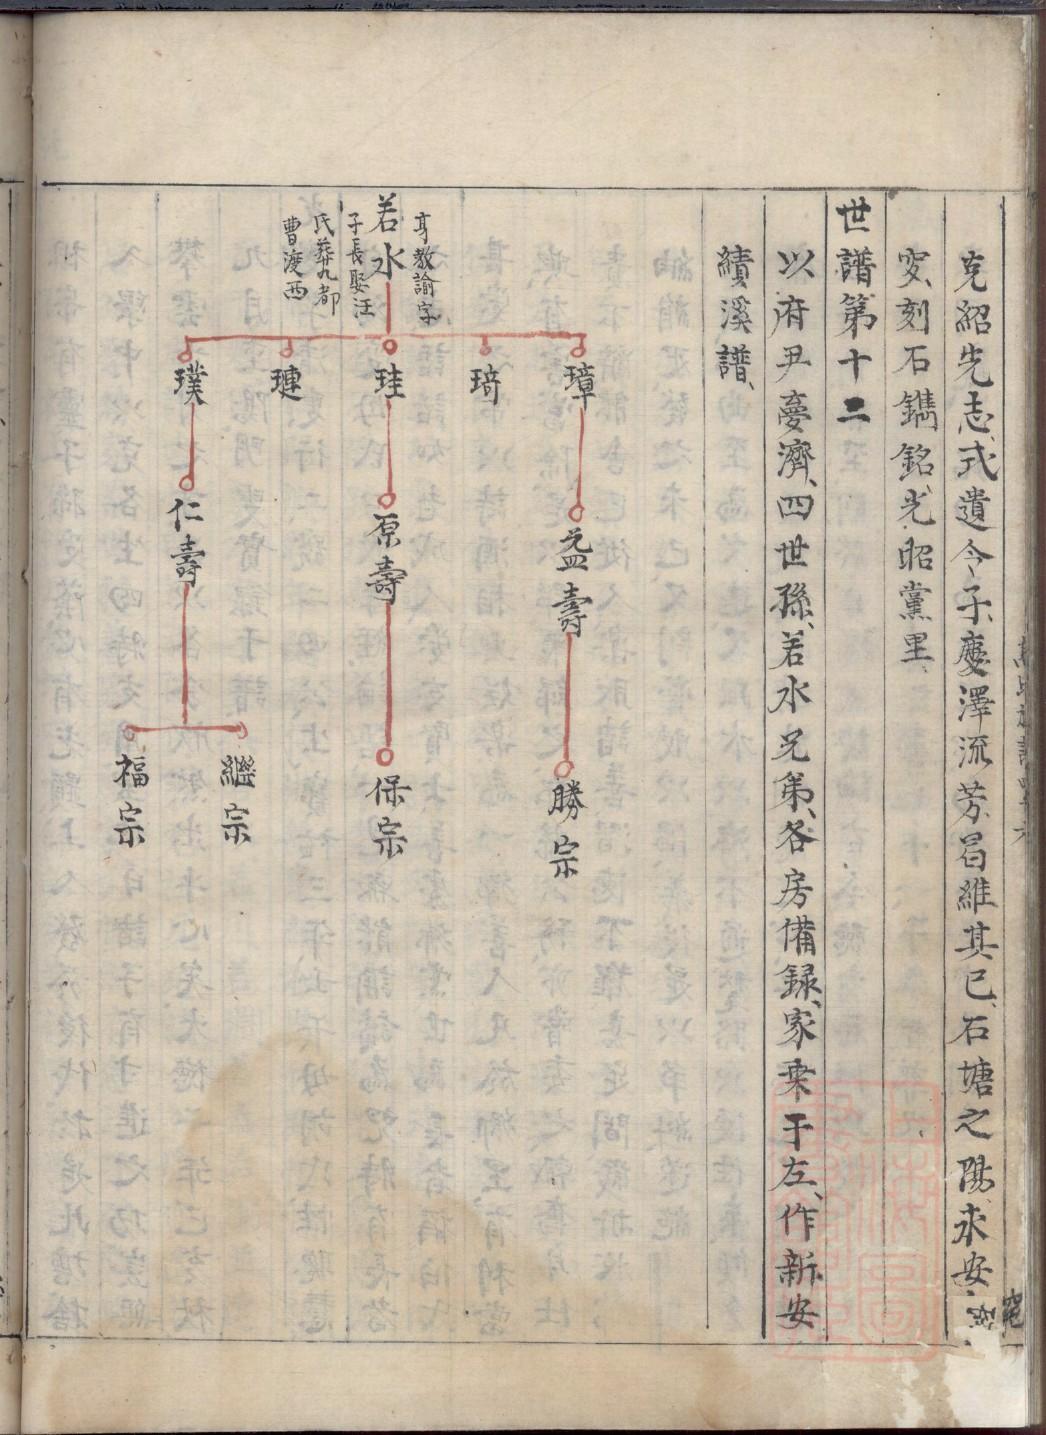 克紹先志、式遺令子、慶澤流芳、曷維其已、石塘之陽、永安
穸、刻石鐫銘、光昭黨里、
世譜第十二
以府尹夢濟、四世孫、若水兄弟、各房備録、家乗于左、作新安
績溪譜、
若水
身教諭字
子長娶汪
氏葬九都
曹渡西
璋
琦
珪
璉
璞
益壽
原壽
仁壽
勝宗
保宗
繼宗
福宗